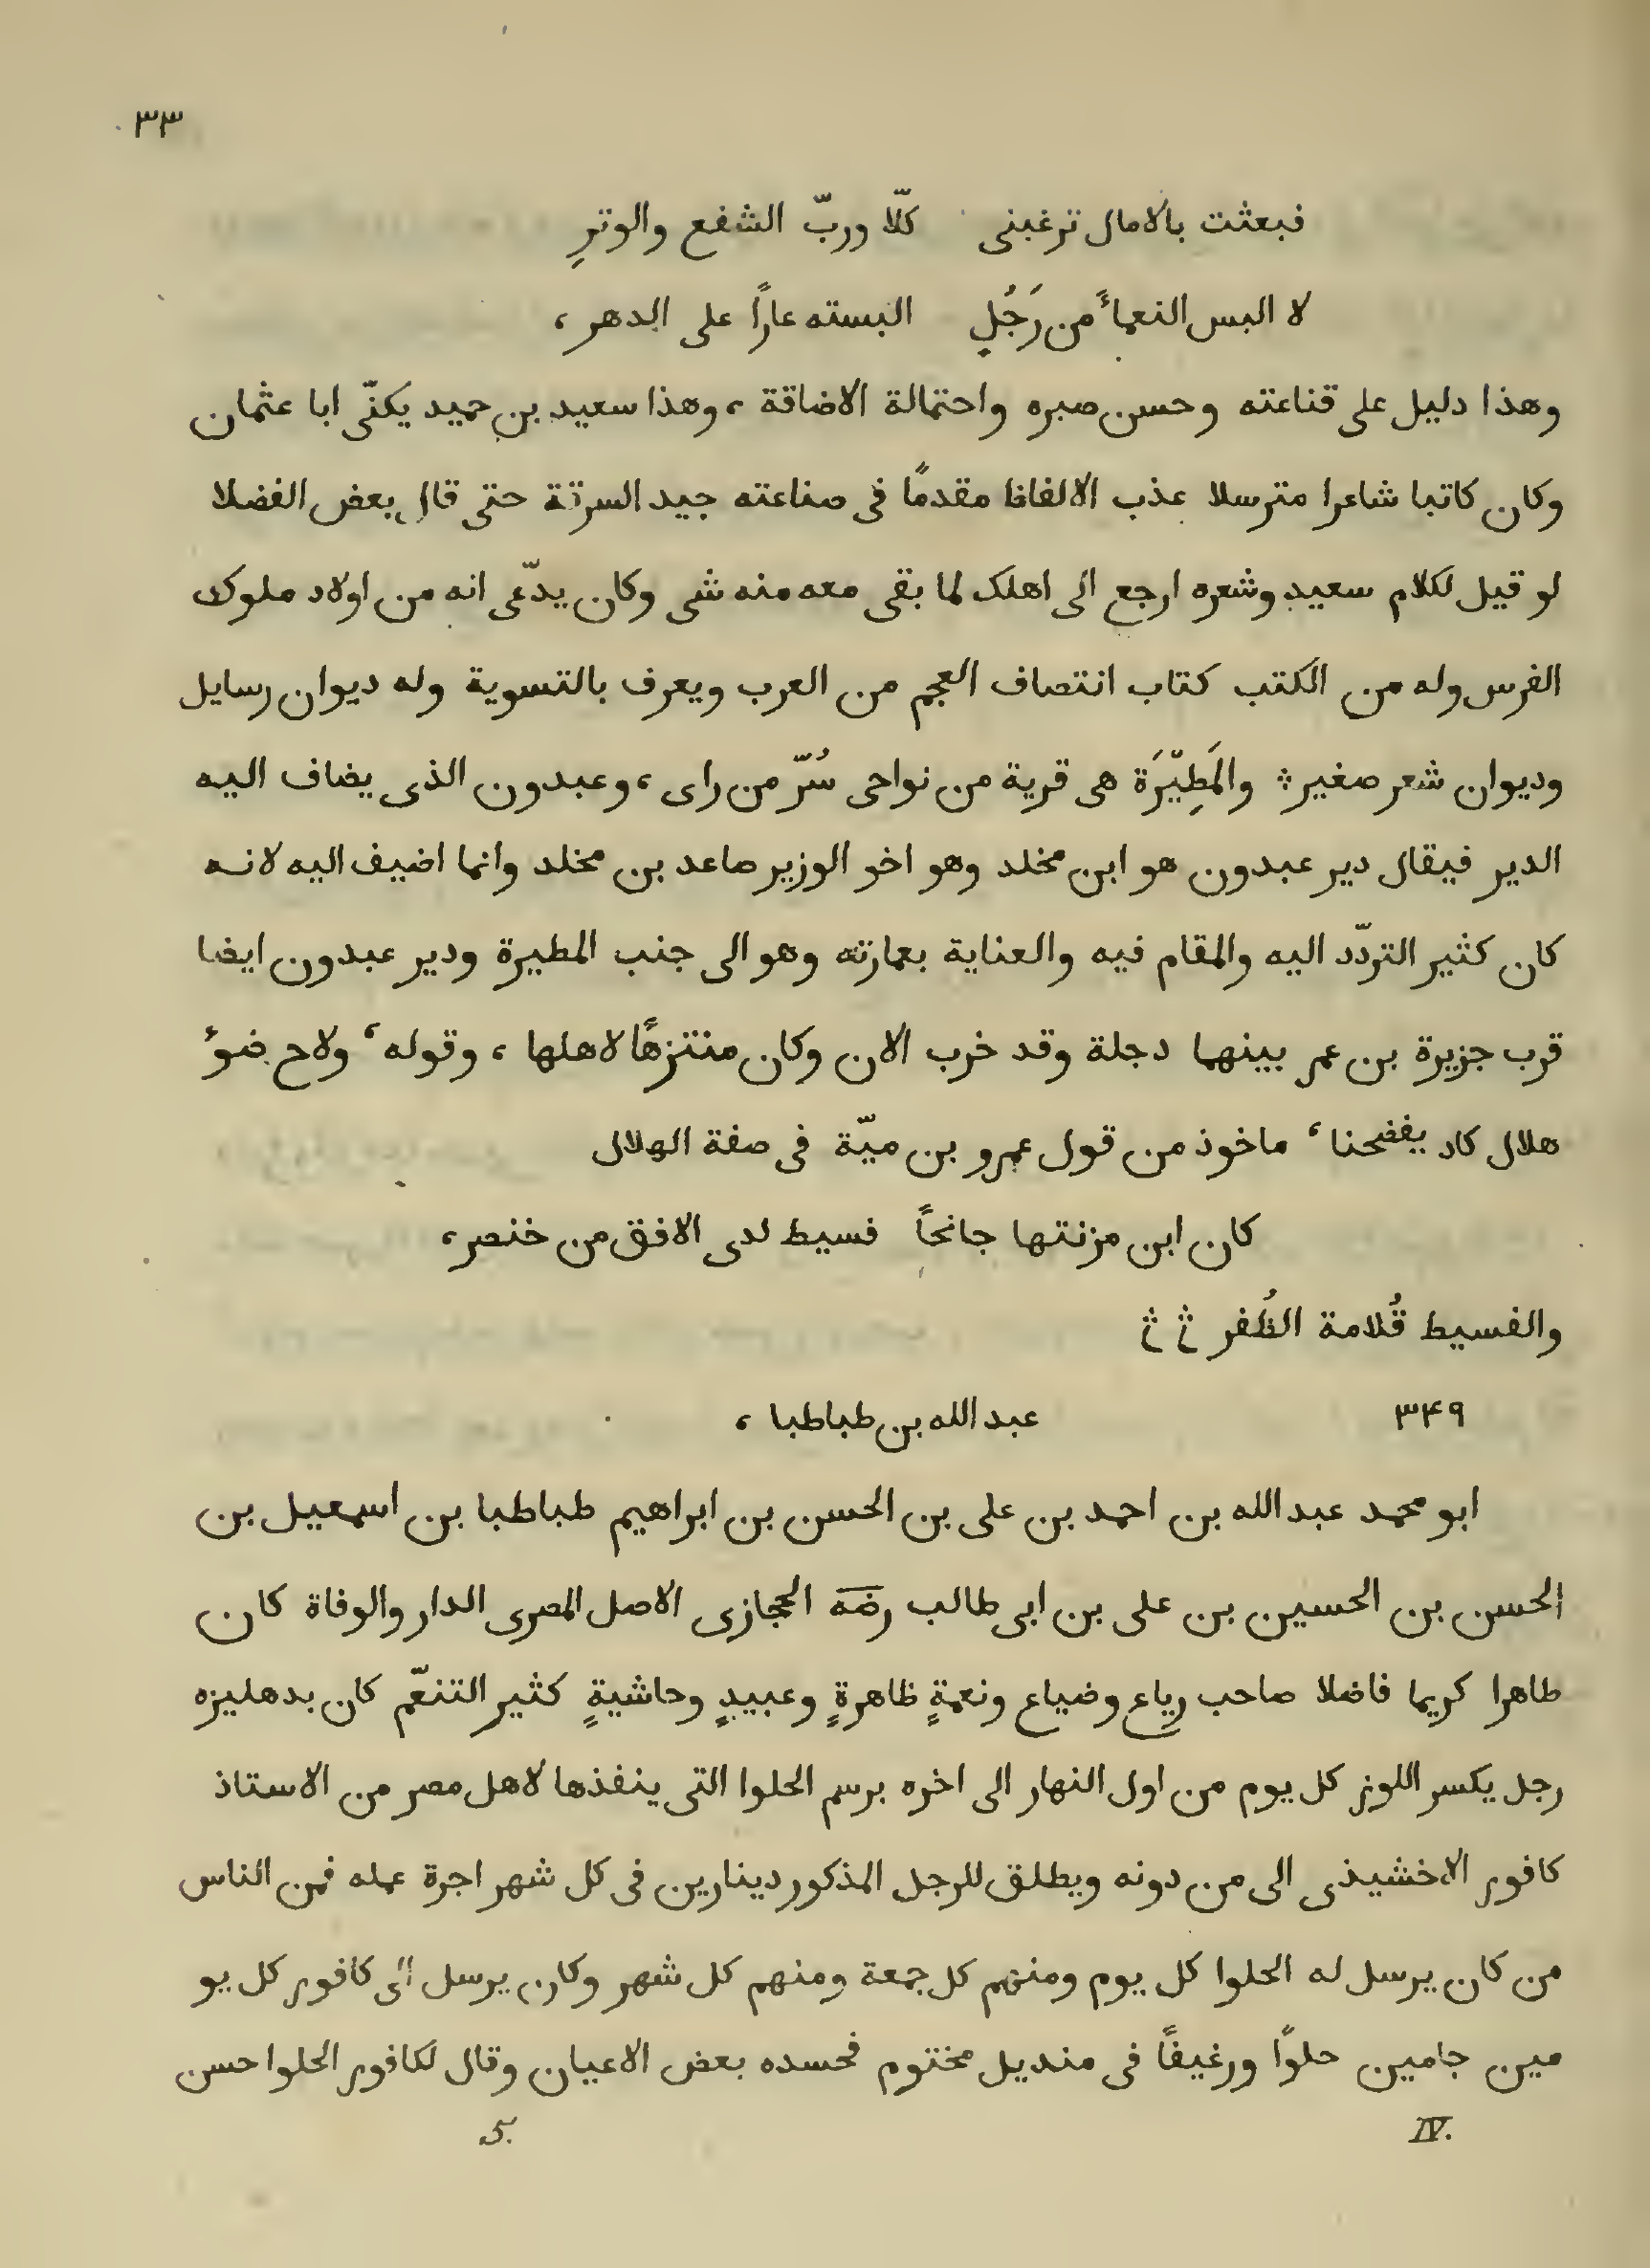 ٣٣
فبعثت بالامال ترغبنى كلّا وربّ الشفع والوترِ
لا البس النعمأً من رَجُلٍ البسته عارًا على الدهر ،
وهذا دليل على قناعته وحسن صبره واحتمالة الاضاقة ، وهذا سعيد بن حميد يكنّى ابا عثمان
وكان كاتبا شاعرا مترسلا عذب الالفاظ مقدمًا فى صناعته جيد السرقة حتى قال بعض الفضلا
لو قيل لكلام سعيد وشعره ارجع الى اهلك لما بقى معه منه شى وكان يدّعى انه من اولاد ملوك
الفرس وله من الكتب كتاب انتصاف العجم من العرب ويعرف بالتسوية وله ديوان رسايل
وديوان شعر صغير ؞ والمَطِيّرَة هى قرية من نواحى سُرّ من راى ، وعبدون الذى يضاف اليه
الدير فيقال دير عبدون هو ابن مخلد وهو اخو الوزير صاعد بن مخلد وانما اضيف اليه لانه
كان كثير التردّد اليه والمقام فيه والعناية بعمارته وهو الى جنب المطيرة ودير عبدون ايضا
قرب جزيرة بن عمر بينهما دجلة وقد خرب الان وكان منتزهًا لاهلها ، وقوله ، ولاح ضوءُ
هلال كاد يفضحنا ، ماخوذ من قول عمرو بن ميّة فى صفة الهلال
كان ابن مزنتها جانحاً فسيط لدى الافق من خنصر ،
والفسيط قُلامة الظُفر ؞ ؞
٣٤٩ عبد الله بن طباطبا ،
ابو محمد عبد الله بن احمد بن على بن الحسن بن ابراهيم طباطبا بن اسمعيل بن
الحسن بن الحسين بن على بن ابى طالب رضه الحجازى الاصل المصرى الدار والوفاة كان
طاهرا كريما فاضلا صاحب رياع وضياع ونعمةٍ ظاهرةٍ وعبيدٍ وحاشيةٍ كثير التنعّم كان بدهليزه
رجل يكسر اللوز كل يوم من اول النهار الى اخره برسم الحلوا التى ينفذها لاهل مصر من الاستاذ
كافور الاخشيذى الى من دونه ويطلق للرجل المذكور دينارين فى كل شهر اجرة عمله فمن الناس
من كان يرسل له الحلوا كل يوم ومنهم كل جمعة ومنهم كل شهر وكان يرسل الى كافور كل يو
مين جامين حلوًا ورغيفًا فى منديل مختوم فحسده بعض الاعيان وقال لكافور الحلوا حسن
IV. 5.